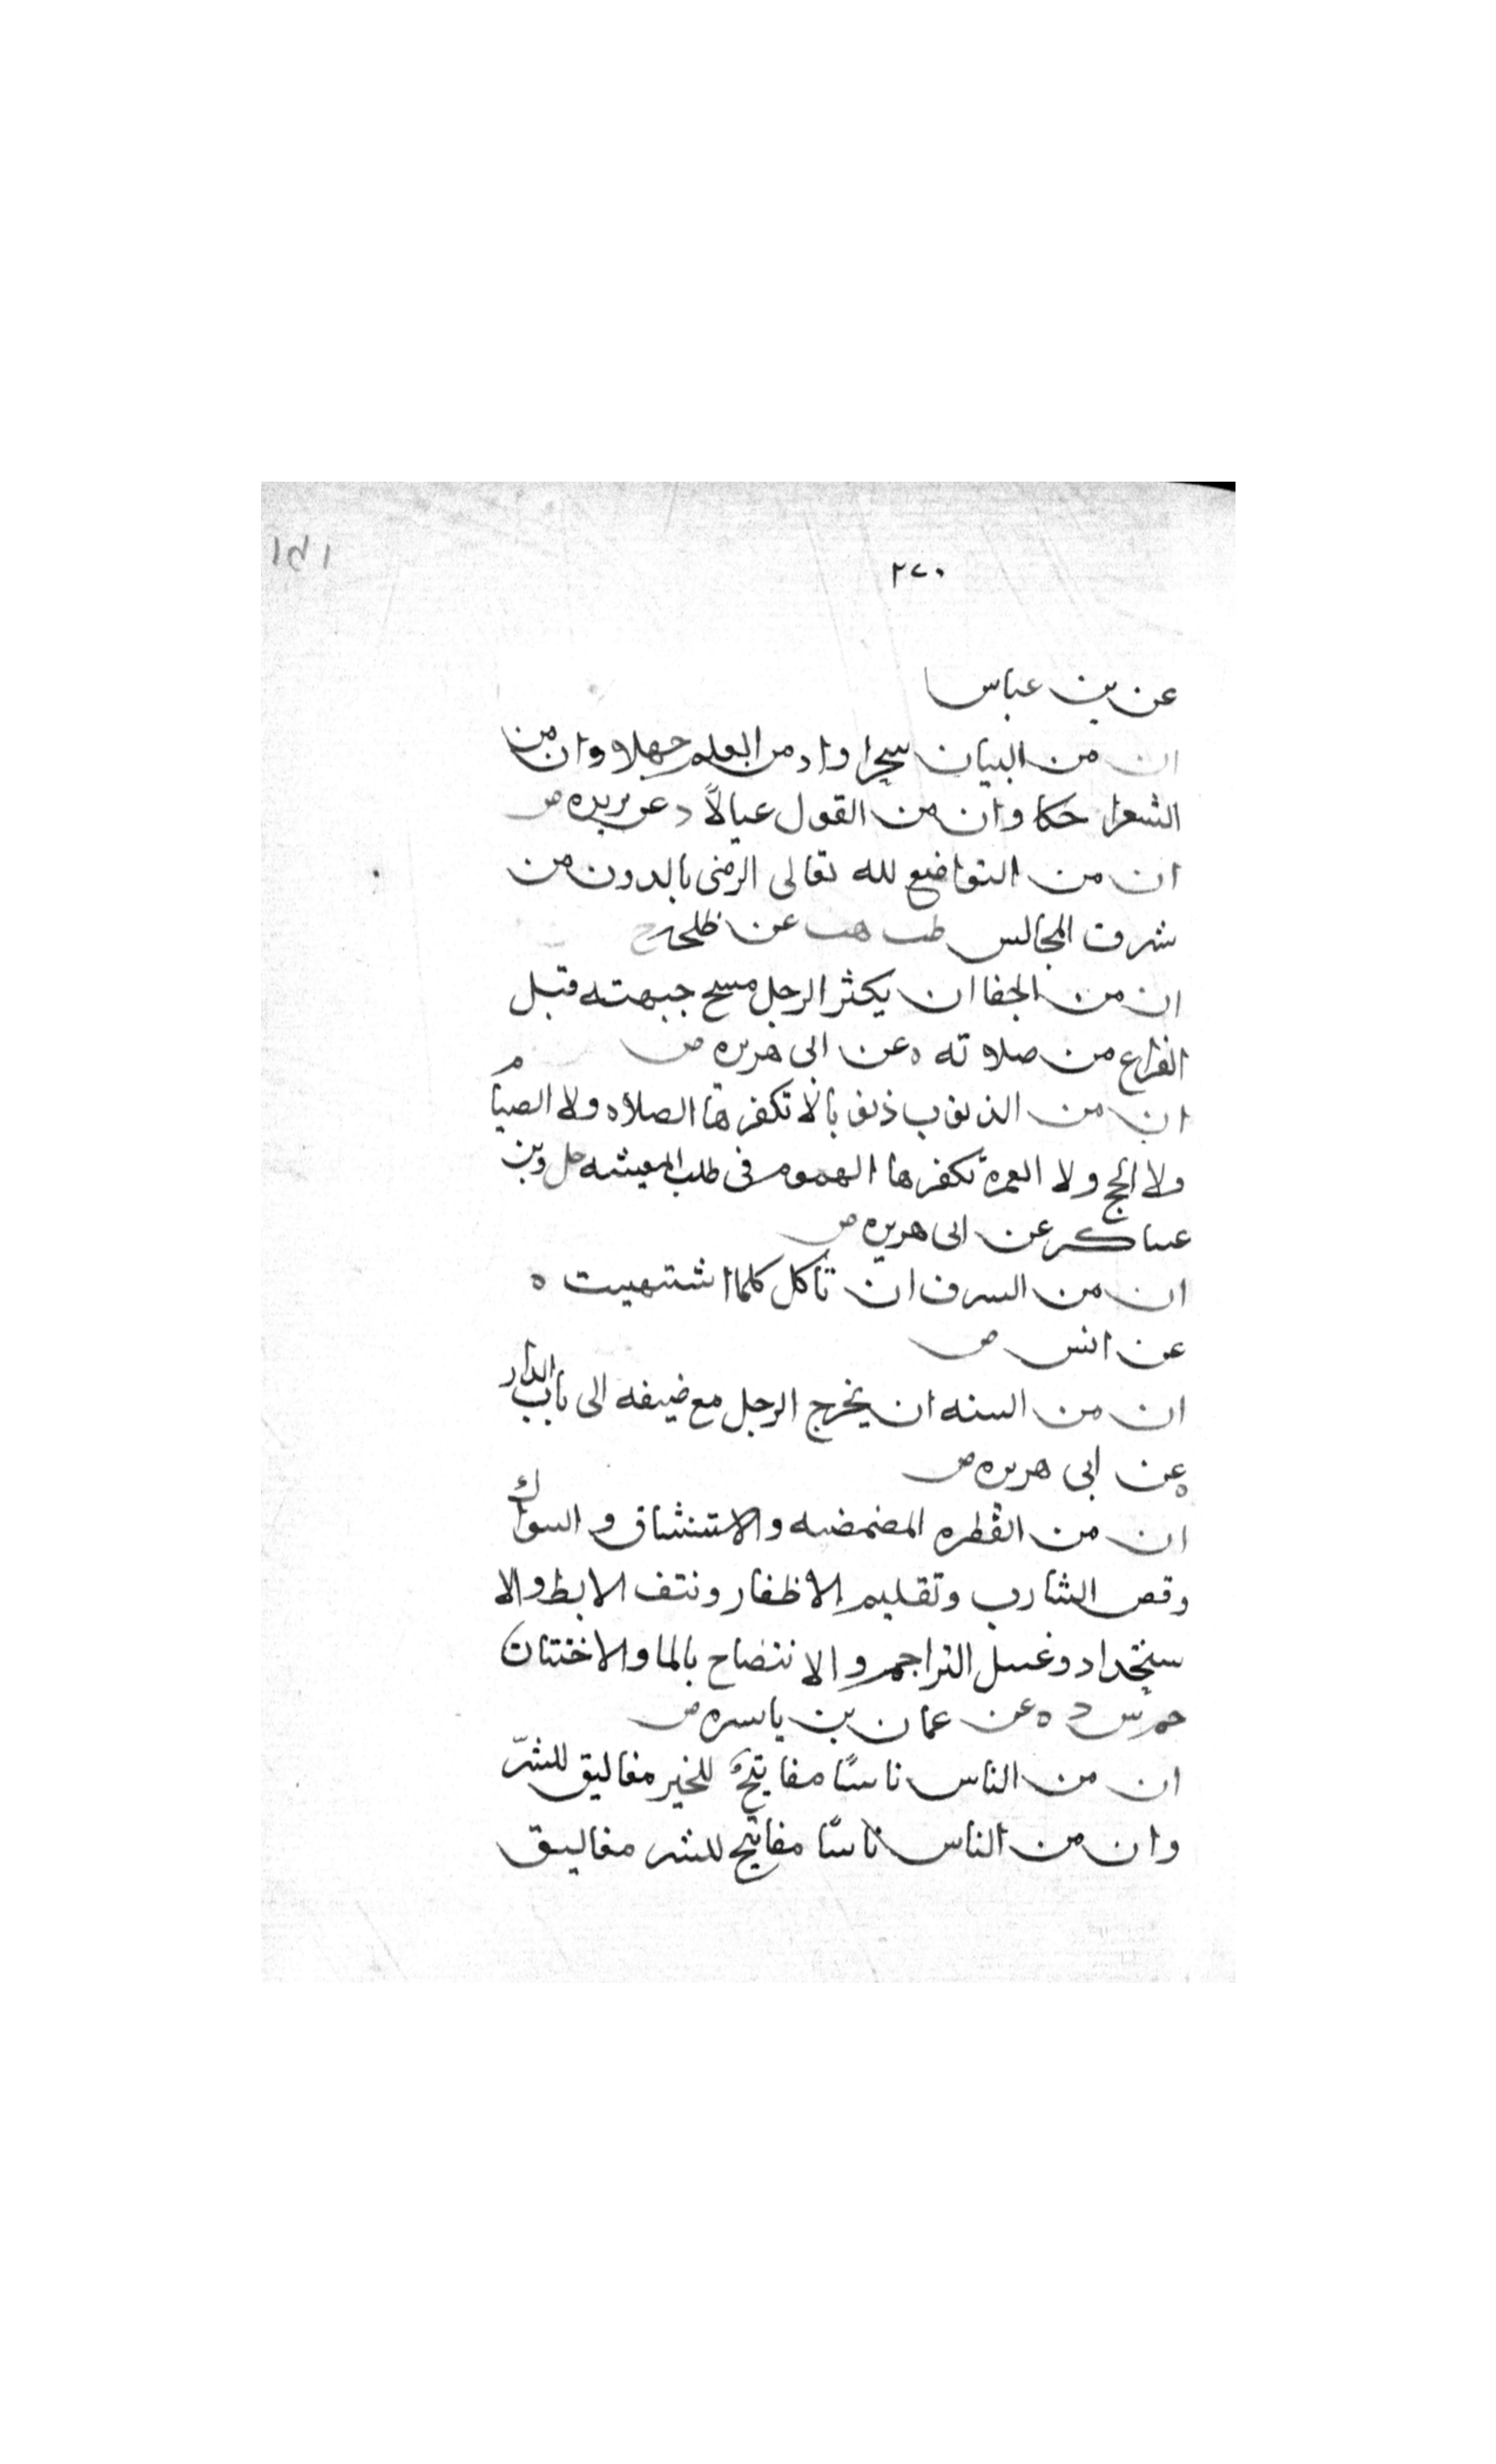 ٢٧٠
عن بن عباس
ان من البيان سحرا وان من العلم جهلا وان من
الشعرا حكما وان من القول عيالًا د عن بريده ض
ان من التواضع لله تعالى الرضى بالدون من
شرف المجالس طب هب عن طلحه ح
ان من الجفا ان يكثر الرجل مسح جبهته قبل
الفراع من صلاته ه عن ابى هريره ض
ان من الذنوب ذنوبا لا تكفرها الصلاه ولا الصيام
ولا الحج ولا العمرة تكفرها الهموم فى طلب المعيشه حل وبن
عساكر عن ابى هريره ض
ان من السرف ان تأكل كلما اشتهيت ه
عن انس ض
ان من السنه ان يخرج الرجل مع ضيفه الى باب الدار
ه عن ابى هريره ض
ان من الفطره المضمضه والاستنشاق والسواك
وقص الشارب وتقليم الاظفار ونتف الابط والا
ستحداد وغسل البراجم والانتضاح بالما والاختتان
حم ش د ه عن عمان بن ياسره ض
ان من الناس ناسًا مفاتيح للخير مغاليق للشرّ
وان من الناس ناسًا مفاتيح للشر مغاليق